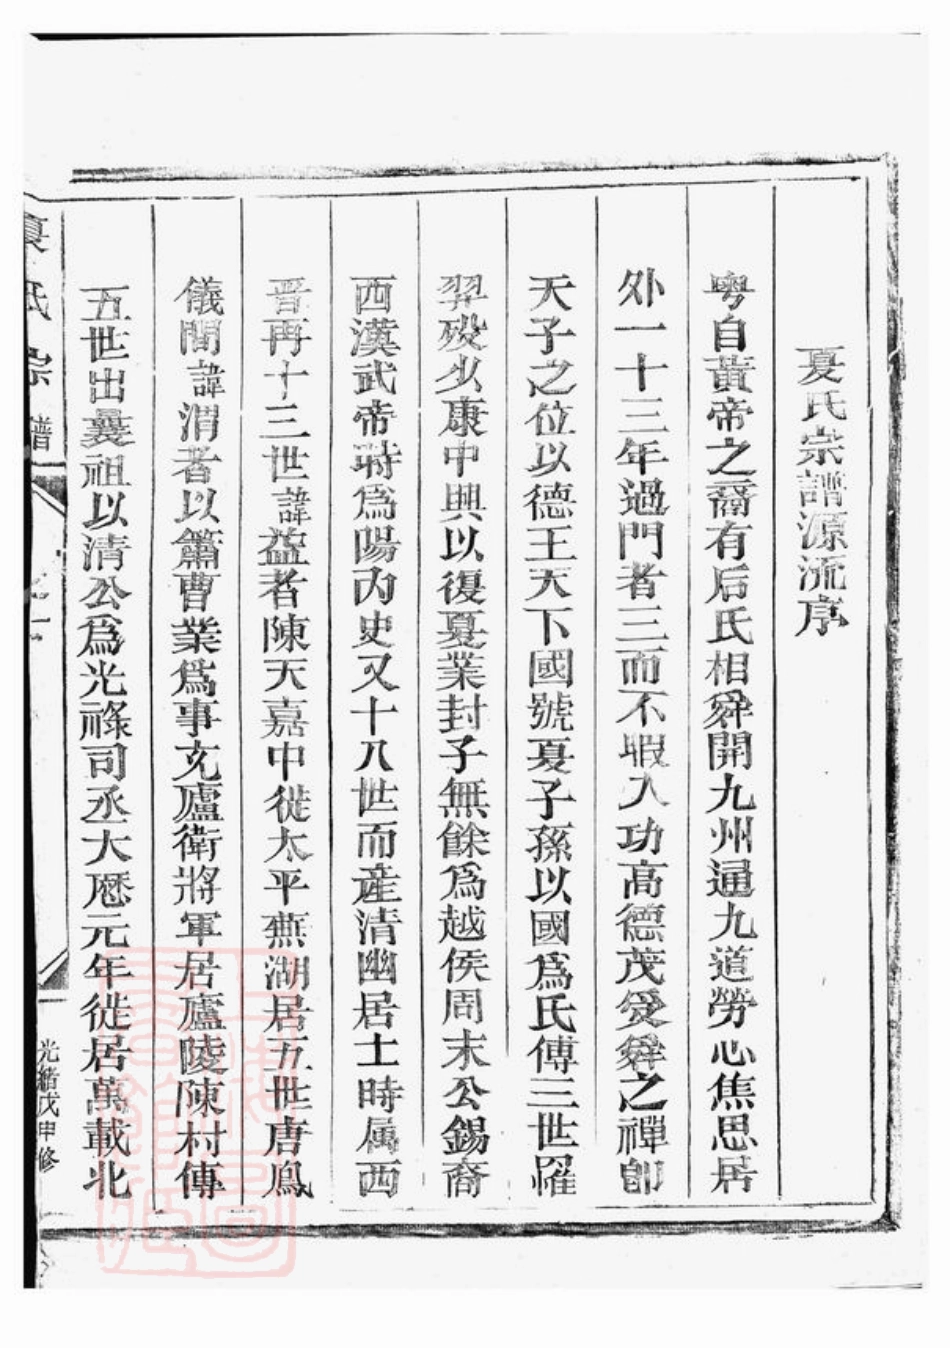 夏氏宗譜源流序
粵自黃帝之裔有后氏相舜開九州通九道勞心焦思居
外一十三年過門者三而不暇入功高德茂受舜之禪卽
天子之位以德王天下國號夏子孫以國爲氏傳三世罹
羿殁少康中興以復夏業封子無餘爲越侯周末公錫裔
西漢武帝時爲陽內史又十八世而産清幽居士時属西
晋再十三世諱益者陳天嘉中徙太平蕪湖居五世唐鳳
儀間諱渭者以簫曹業爲事充廬衛將軍居廬陵陳村傳
五世出曩祖以清公爲光祿司丞大厯元年徙居萬載北
夏氏宗譜
光緒戊申修